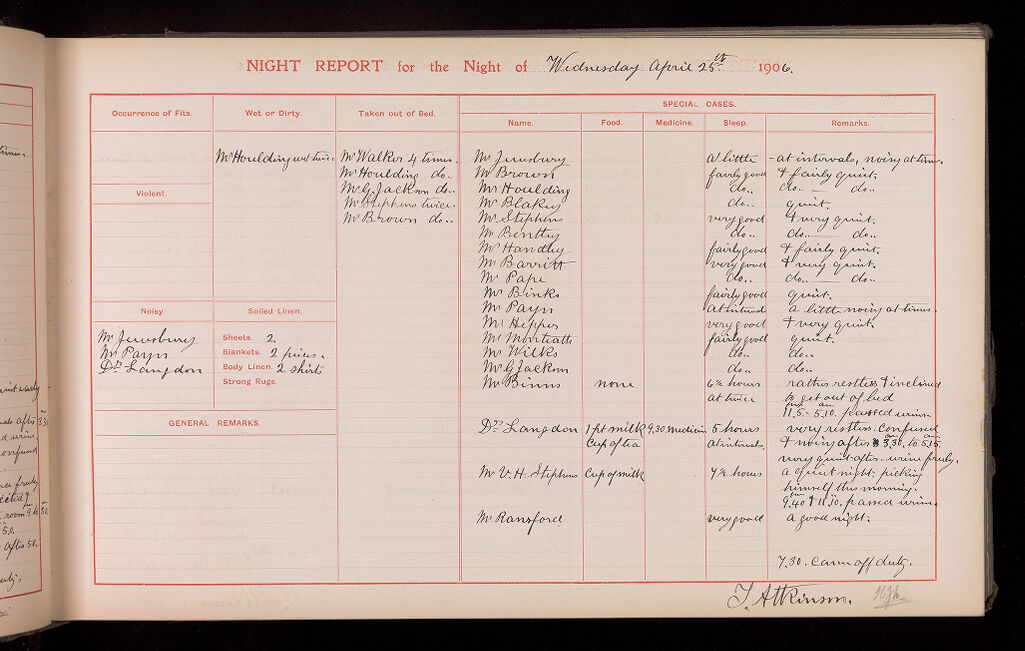 NIGHT REPORT for the Night of Wednesday April 25th 1906.
SPECIAL CASES.
Occurrence of Fits.
Wet or Dirty.
Taken out of Bed.
Name.
Food.
Medicine.
Sleep.
Remarks.
Mr Houlding wet twice.
Mr Walker 4 times.
Mr Houlding do..
Mr G. Jackson do..
Mr Stephens twice.
Mr Brown do..
Violent.
Noisy.
Mr Jewsbury
Mr Payn
Dr Langdon
Soiled Linen.
Sheets. 2.
Blankets. 2 pieces.
Body Linen. 2 shirts
Strong Rugs.
GENERAL REMARKS.
Mr Jewsbury a little - at intervals, noisy at times.
Mr Brown fairly good & fairly quiet.
Mr Houlding do.. do.. — do..
Mr Blakey do.. quiet.
Mr Stephens very good & very quiet.
Mr Benthey do.. do.. — do..
Mr Handley fairly good & fairly quiet.
Mr Barritt very good & very quiet.
Mr Pape do.. do.. — do..
Mr Binks fairly good quiet.
Mr Payn a little noisy at times.
Mr Hepper very good & very quiet.
Mr fairly good quiet.
Mr Wilks do.. do..
Mr G Jackson do.. do..
Mr Binns none 6½ hours rather restless & inclined
at twice to get out of bed
11.5 - 5.10. passed urine
Dr Langdon 1 pt milk 9.30. medicine 5 hours very restless. confused
Cup of tea at intervals & noisy after 3.30. to 5.15.
very quiet after. urine freely.
Mr V. H. Stephens Cup of milk 7½ hours a quiet night, picking
himself this morning.
9.40 & 11.10. passed urine.
Mr Ransford very good a good night.
7.30. came off duty.
T. Atkinson.
times.
after
confused
freely
room
after 50.
duty.